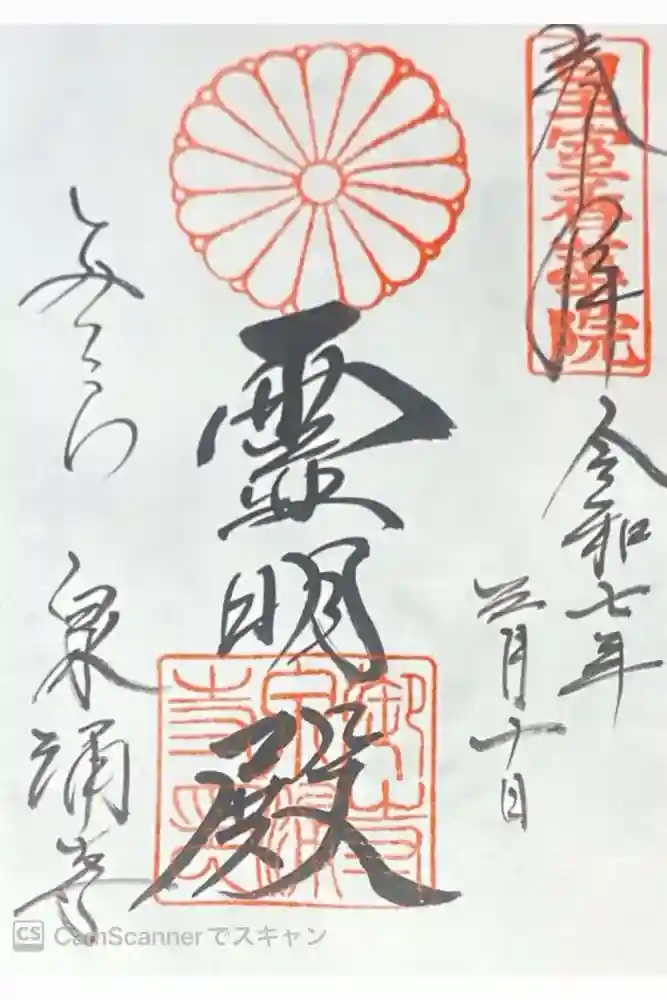 奉拝
皇室香華院
令和七年
三月十日
霊明殿
みてら
泉涌寺
CS CamScannerでスキャン